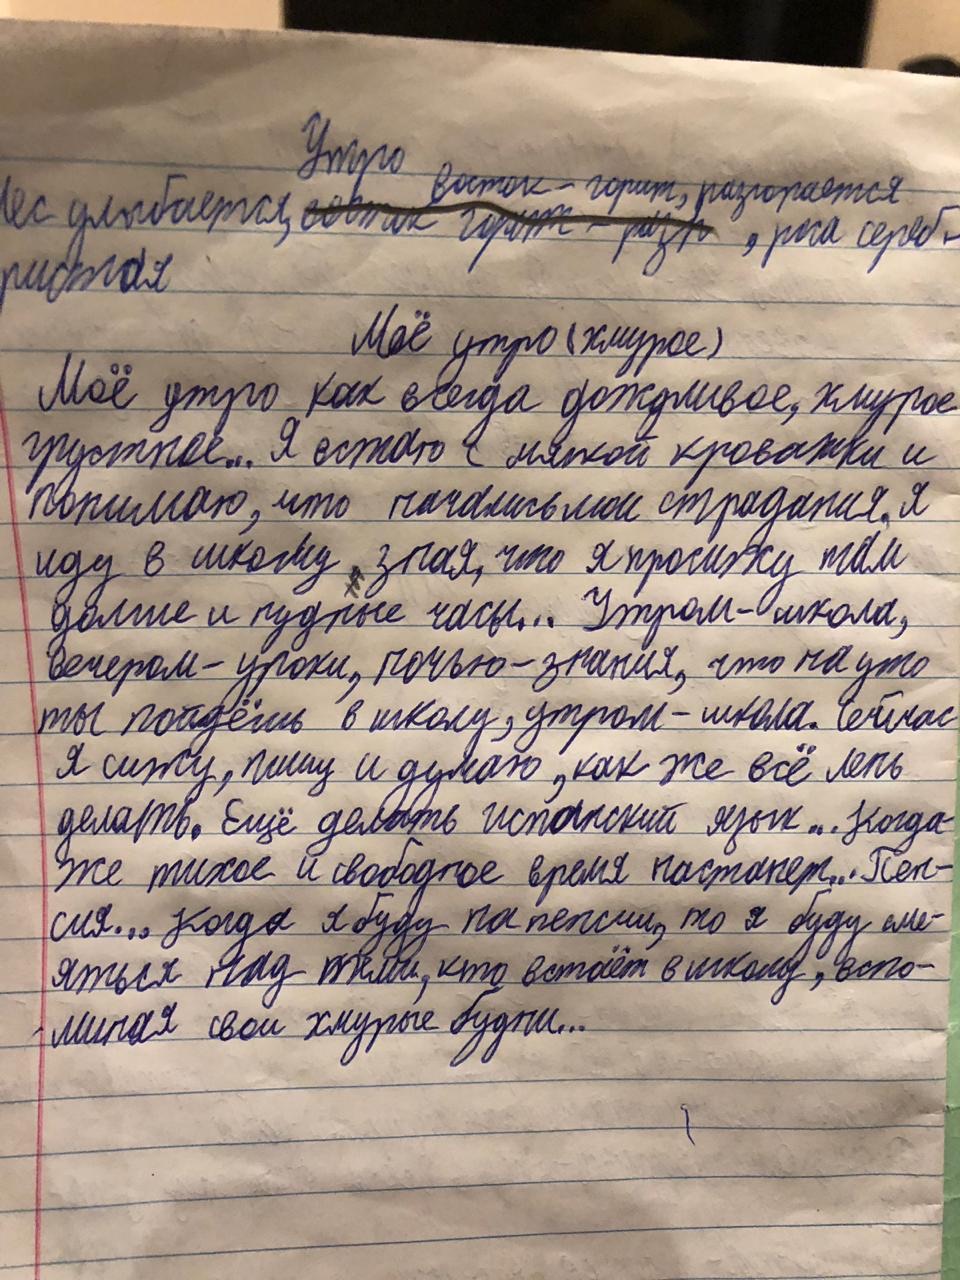 Утро
восток - горит, разгорается
Лес улыбается, восток горит - разг , роса сереб-
ристая
Моё утро (хмурое)
Моё утро как всегда дождливое, хмурое
грустное... Я встаю с мягкой кроватки и
понимаю, что начались мои страдания. Я
иду в школу, зная, что я просижу там
долгие и нудные часы... Утром - школа,
вечером - уроки, ночью - знания, что на утро
ты пойдёшь в школу, утром - школа. Сейчас
я сижу, пишу и думаю, как же всё лень
делать. Ещё делать испанский язык... Когда
же тихое и свободное время настанет... Пен-
сия... Когда я буду на пенсии, то я буду сме-
яться над теми, кто встаёт в школу, вспо-
миная свои хмурые будни...